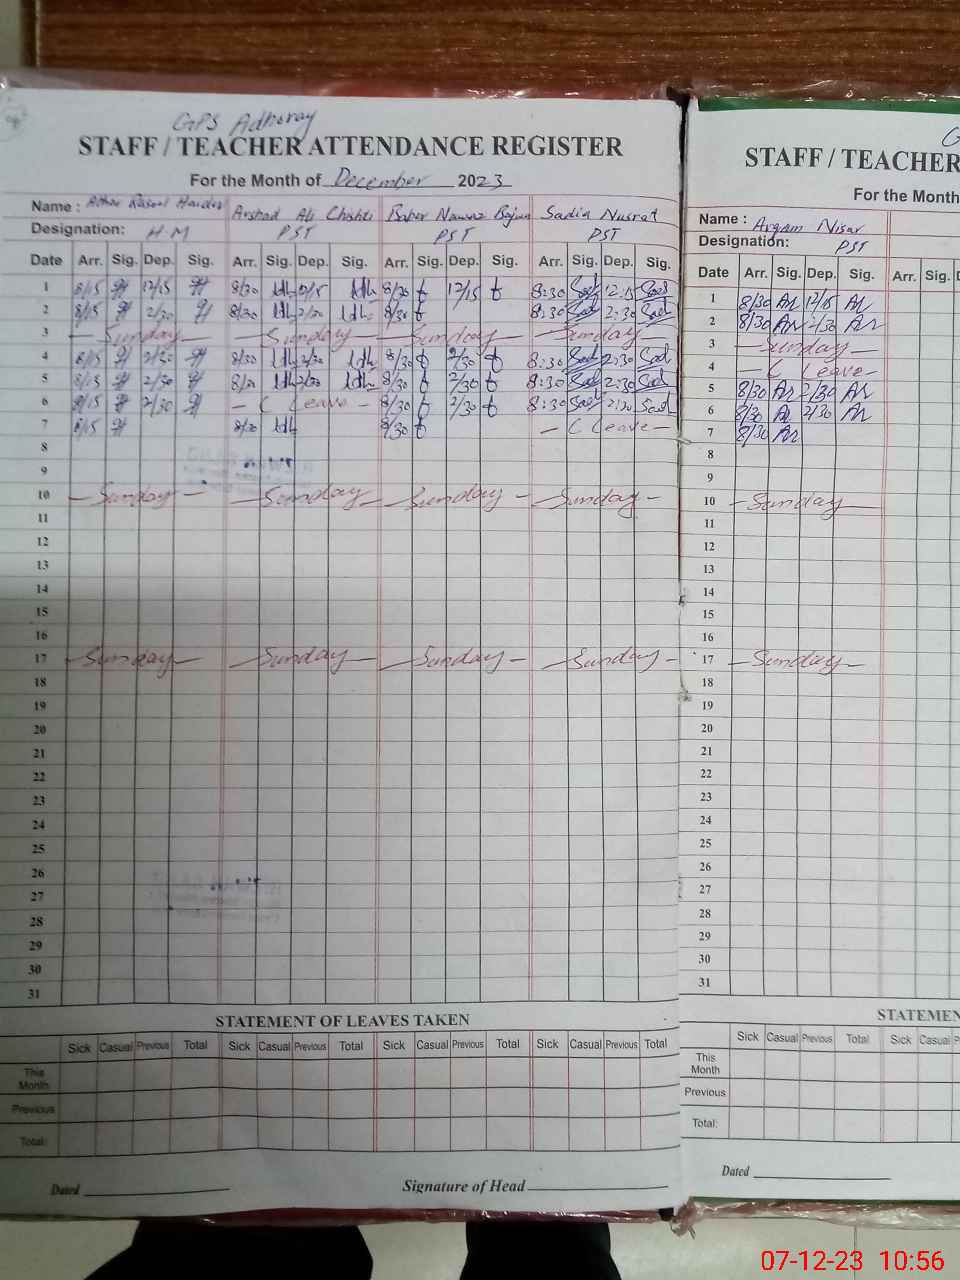 GPS Adhoray
STAFF / TEACHER ATTENDANCE REGISTER
For the Month of December 2023
Name : Athar Rasool Haider Arshad Ali Chishti Baber Nawaz Sadia Nusrat
Designation: H-M PST PST PST
Date Arr. Sig. Dep. Sig. Arr. Sig. Dep. Sig. Arr. Sig. Dep. Sig. Arr. Sig. Dep. Sig.
1 8/15 12/15 8/30 12/15 8/30 12/15 8:30 Sad 12:15 Sad
2 8/15 2/30 8/30 2/30 8/30 8:30 Sad 2:30 Sad
3 - Sunday - - Sunday - - Sunday - - Sunday -
4 8/15 2/30 8/30 2/30 8/30 2/30 8:30 Sad 2:30 Sad
5 8/15 2/30 8/30 2/30 8/30 2/30 8:30 Sad 2:30 Sad
6 8/15 2/30 - C Leave - 8/30 2/30 8:30 Sad 2:30 Sad
7 8/15 8/30 8/30 - C Leave -
8
9
10 - Sunday - - Sunday - - Sunday - - Sunday -
11
12
13
14
15
16
17 - Sunday - - Sunday - - Sunday - - Sunday -
18
19
20
21
22
23
24
25
26
27
28
29
30
31
STATEMENT OF LEAVES TAKEN
Sick Casual Previous Total Sick Casual Previous Total Sick Casual Previous Total Sick Casual Previous Total
This Month
Previous
Total:
Dated Signature of Head
G
STAFF / TEACHER
For the Month
Name : Arqam Nisar
Designation: PST
Date Arr. Sig. Dep. Sig. Arr. Sig.
1 8/30 Ar 12/15 Ar
2 8/30 Ar 2/30 Ar
3 - Sunday -
4 - C Leave -
5 8/30 Ar 2/30 Ar
6 8/30 Ar 2/30 Ar
7 8/30 Ar
8
9
10 - Sunday -
11
12
13
14
15
16
17 - Sunday -
18
19
20
21
22
23
24
25
26
27
28
29
30
31
STATEMEN
Sick Casual Previous Total Sick Casual
This Month
Previous
Total:
Dated
07-12-23 10:56